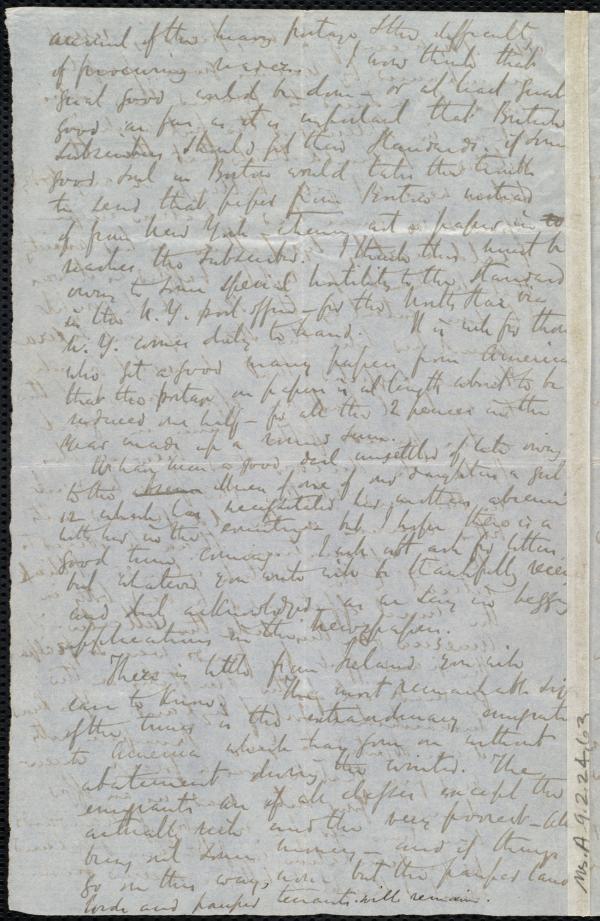 account of the heavy postage & the difficulty
of procuring readers. I now think that
great good would be done - or at least great
good as far as it is important that British
Subscribers should get their Standards - if some
good soul in Boston would take the trouble
to send that paper from Boston instead
of from New York - every out paper in to
reaches the subscriber. I think this must be
owing to some special hostility to the Standard
in the N. Y. post office - for the North Star via
N. Y. comes duly to hand. It is well for those
who get a good many papers from America
that the postage on papers is at length about to be
reduced one half - for all the 2 pences in the
year made up a round sum.
We have been a good deal unsettled of late owing
to the illness of one of our daughters a girl
12 which has necessitated her mother's absence
with her in the country - but I hope there is a
good time coming. I will not ask for letters
but whatever you write will be thankfully receiv
and duly acknowledged as we say in begging
applications in the newspapers.
There is little from Ireland you will
care to know. The most remarkable sign
of the times is the extraordinary emigration
to America which has gone on without
abatement during the winter. The
emigrants are of all classes except the
actually rich and the very poorest - all
bring out some money - and if things
go on this way, none but the pauper land
lords and pauper tenants will remain.
Ms. A. 9. 2. 24. 63